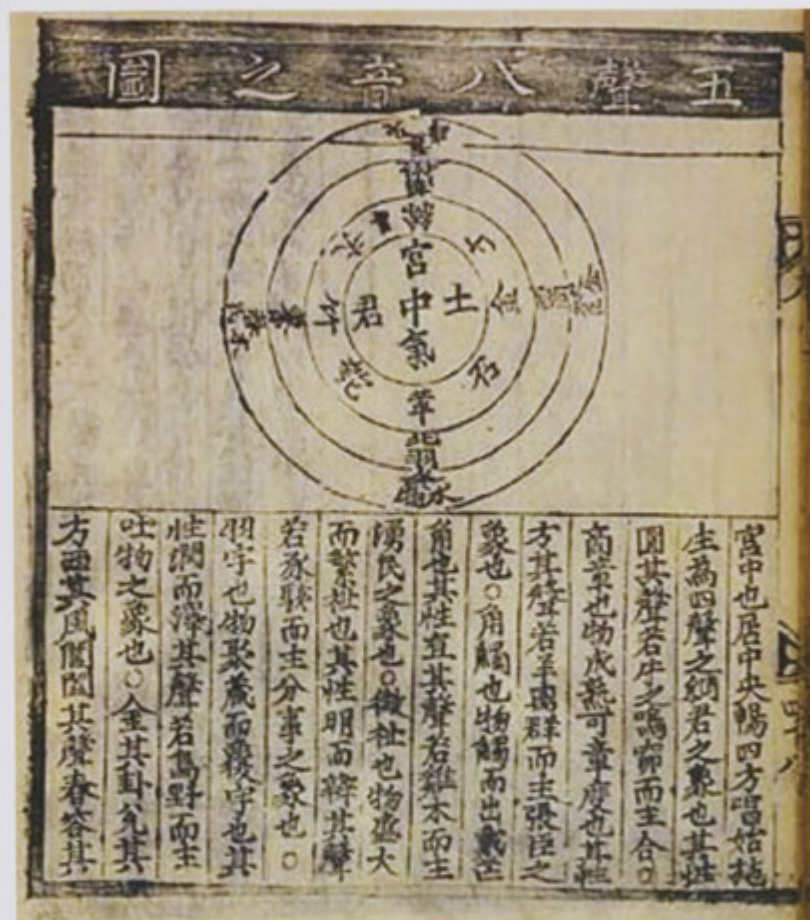 五聲八音之圖
宮中氣
土
君
金
石
竹
革
羽
水
宮中也居中央暢四方唱始施
生爲四聲之綱君之象也其性
圓其聲若牛之鳴窌而主合○
商章也物成熟可章度也其性
方其聲若羊離群而主張臣之
象也○角觸也物觸而出戴芒
角也其性直其聲若雞木而主
湧民之象也○徵祉也物盛大
而繁祉也其性明而辨其聲
若豕駭而主分事之象也○
羽宇也物聚藏而覆宇也其
性潤而澤其聲若馬野而主
吐物之象也○金其卦兌其
方西其風閶闔其聲舂容其